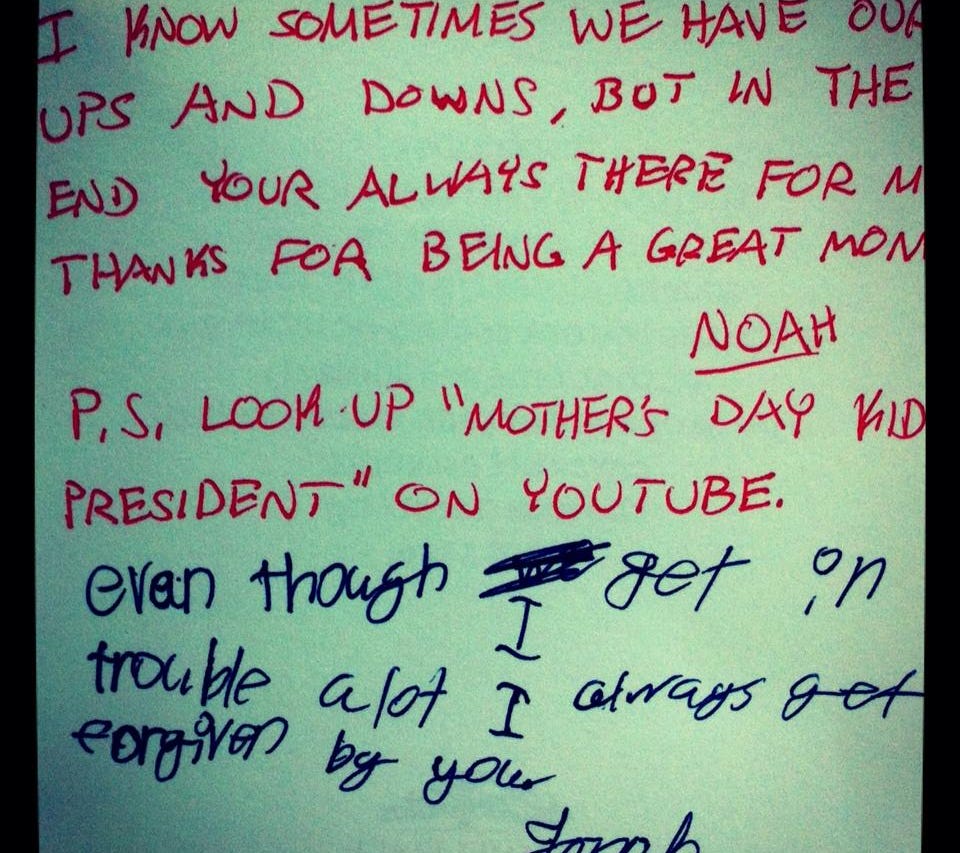 I KNOW SOMETIMES WE HAVE OUR
UPS AND DOWNS, BUT IN THE
END YOUR ALWAYS THERE FOR M
THANKS FOR BEING A GREAT MOM
NOAH
P.S. LOOK UP "MOTHER'S DAY KID
PRESIDENT" ON YOUTUBE.
even though get in
I
trouble alot I always get
forgiven by you